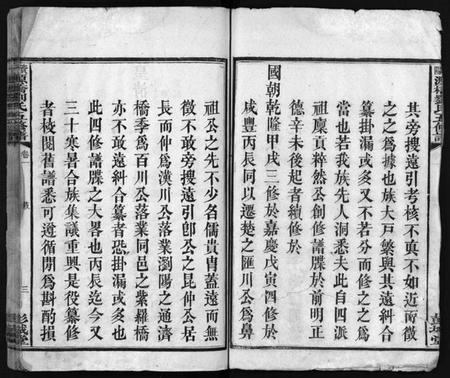 其旁搜遠引考核不真不如近而徵
之之爲據也族大戶繁與其遠糾合
纂掛漏或多又不若分而修之之爲
當也若我族先人洞悉夫此自四派
祖稟貢粹然公創修譜牒於前明正
德辛未後起者續修於
國朝乾隆甲戌三修於嘉慶戊寅四修於
咸豐丙辰同以遷楚之匯川公爲鼻
祖公之先不少名儒貴胄蓋遠而無
徵不敢旁搜遠引卽公之昆仲公居
長而仲爲漢川公落業瀏陽之通濟
橋季爲百川公落業同邑之紫羅橋
亦不敢遠糾合纂者恐掛漏或多也
此四修譜牒之大畧也丙辰迄今又
三十寒暑合族集議重興是役纂修
者棱閱舊譜悉可遵循閒爲斟酌損
卷一
三
彭城堂